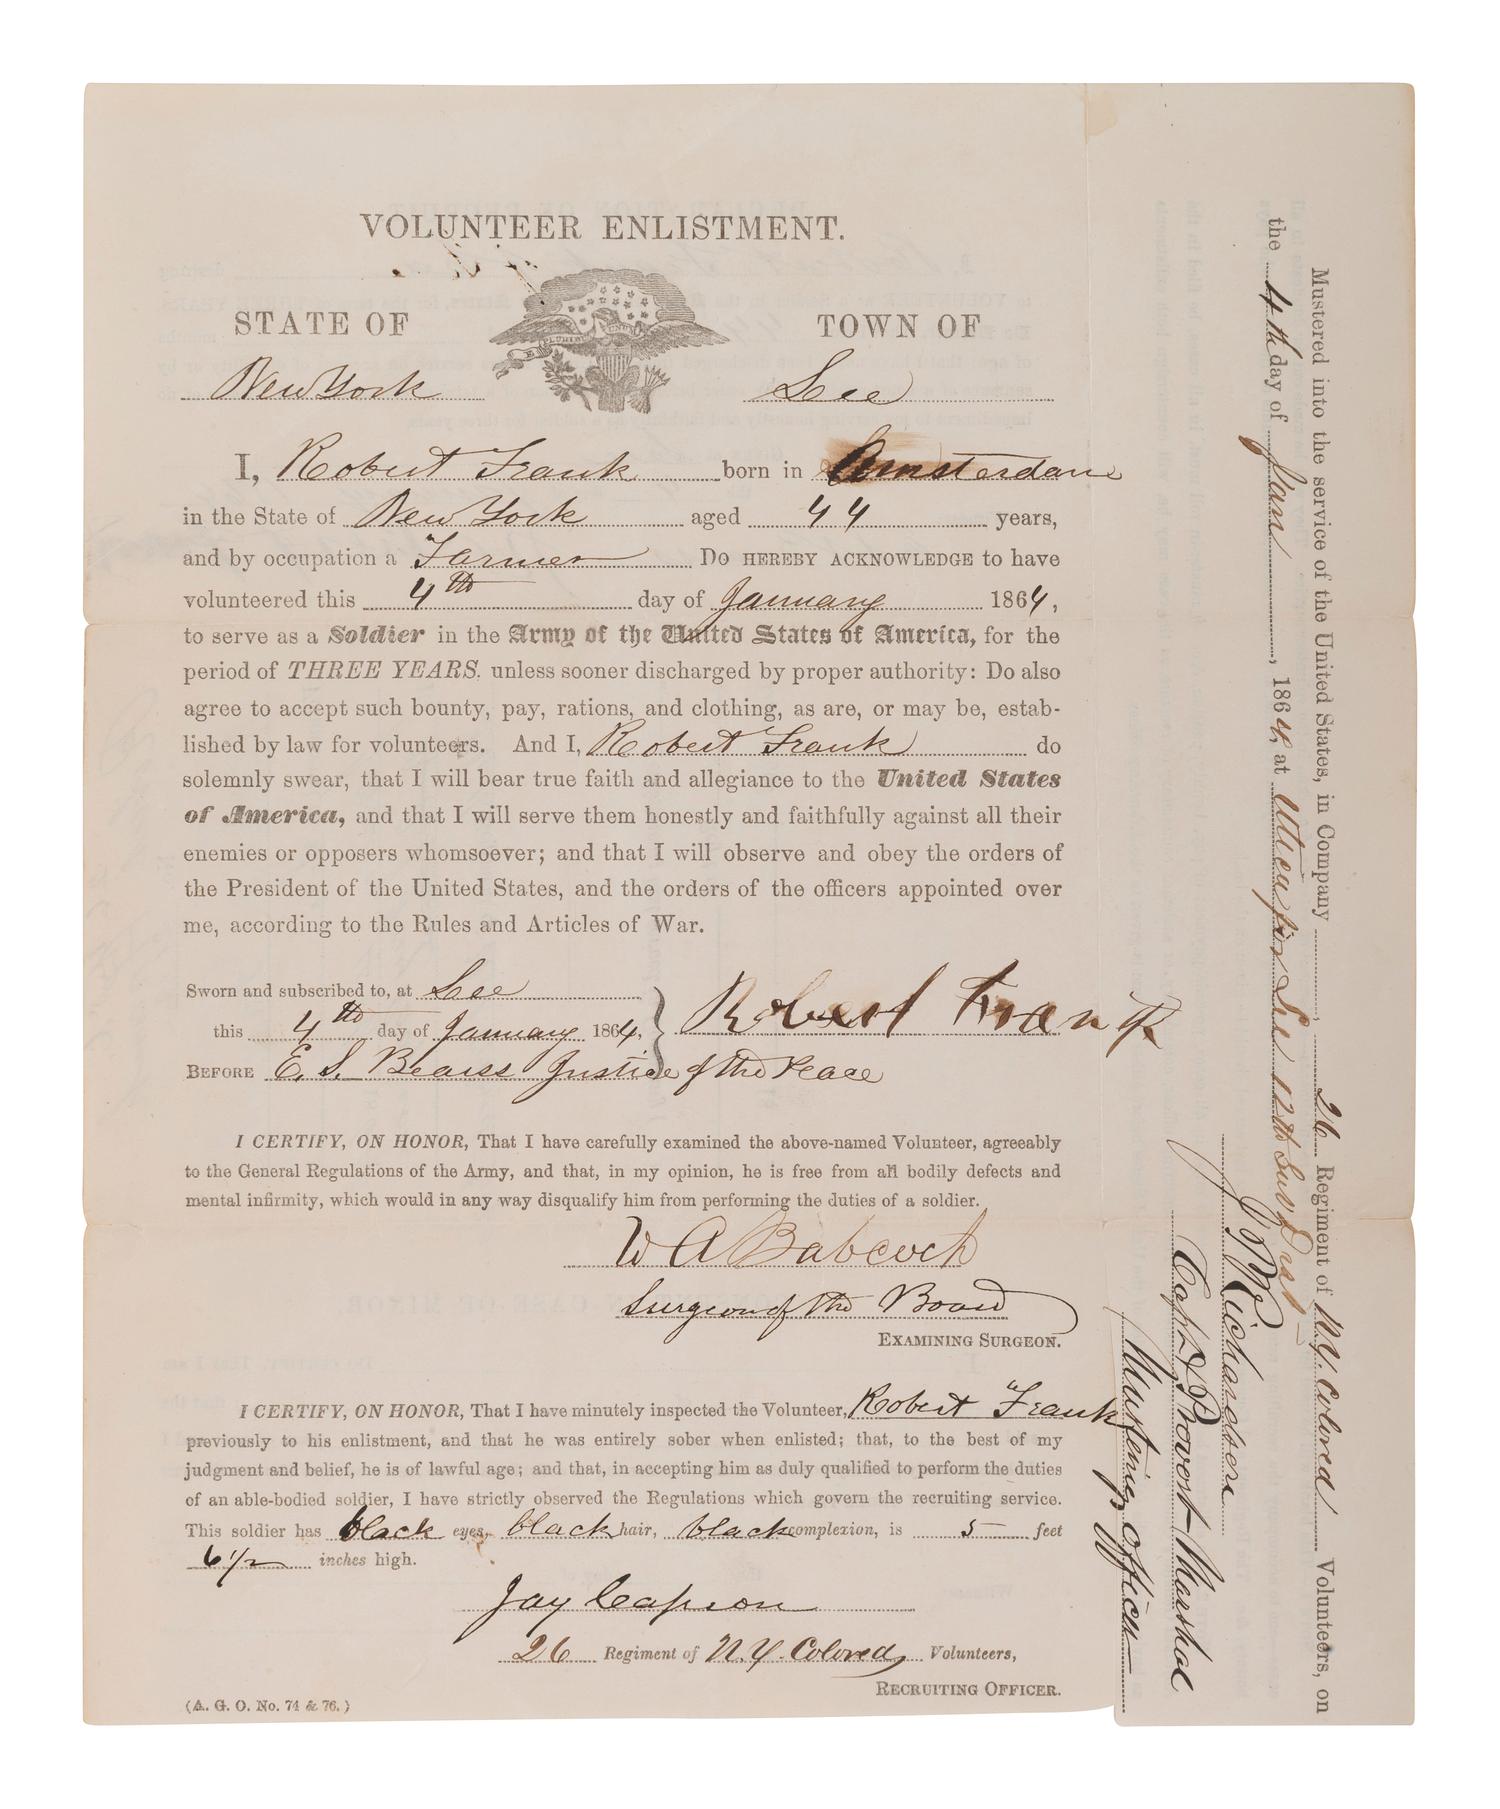 VOLUNTEER ENLISTMENT.
STATE OF TOWN OF
E PLURIBUS UNUM
New York Lee
I, Robert Frank born in Amsterdam
in the State of New York aged 44 years,
and by occupation a Farmer Do HEREBY ACKNOWLEDGE to have
volunteered this 4th day of January 1864,
to serve as a Soldier in the Army of the United States of America, for the
period of THREE YEARS, unless sooner discharged by proper authority: Do also
agree to accept such bounty, pay, rations, and clothing, as are, or may be, estab-
lished by law for volunteers. And I, Robert Frank do
solemnly swear, that I will bear true faith and allegiance to the United States
of America, and that I will serve them honestly and faithfully against all their
enemies or opposers whomsoever; and that I will observe and obey the orders of
the President of the United States, and the orders of the officers appointed over
me, according to the Rules and Articles of War.
Sworn and subscribed to, at Lee
this 4th day of January 1864, Robert Frank
BEFORE E. S. Bearss Justice of the Peace
I CERTIFY, ON HONOR, That I have carefully examined the above-named Volunteer, agreeably
to the General Regulations of the Army, and that, in my opinion, he is free from all bodily defects and
mental infirmity, which would in any way disqualify him from performing the duties of a soldier.
W A Babcock
Surgeon of the Board
EXAMINING SURGEON.
I CERTIFY, ON HONOR, That I have minutely inspected the Volunteer, Robert Frank
previously to his enlistment, and that he was entirely sober when enlisted; that, to the best of my
judgment and belief, he is of lawful age; and that, in accepting him as duly qualified to perform the duties
of an able-bodied soldier, I have strictly observed the Regulations which govern the recruiting service.
This soldier has black eyes, black hair, black complexion, is 5 feet
6 1/2 inches high.
Jay
26 Regiment of N.Y. Colored Volunteers,
RECRUITING OFFICER.
(A. G. O. No. 74 & 76.)
Mustered into the service of the United States, in Company , 26 Regiment of N.Y. Colored Volunteers, on
the 4th day of Jan , 1864, at Utica for Lee 12th Sub Dist
J. M. Richardson
Capt & Provost Marshal
Mustering Officer